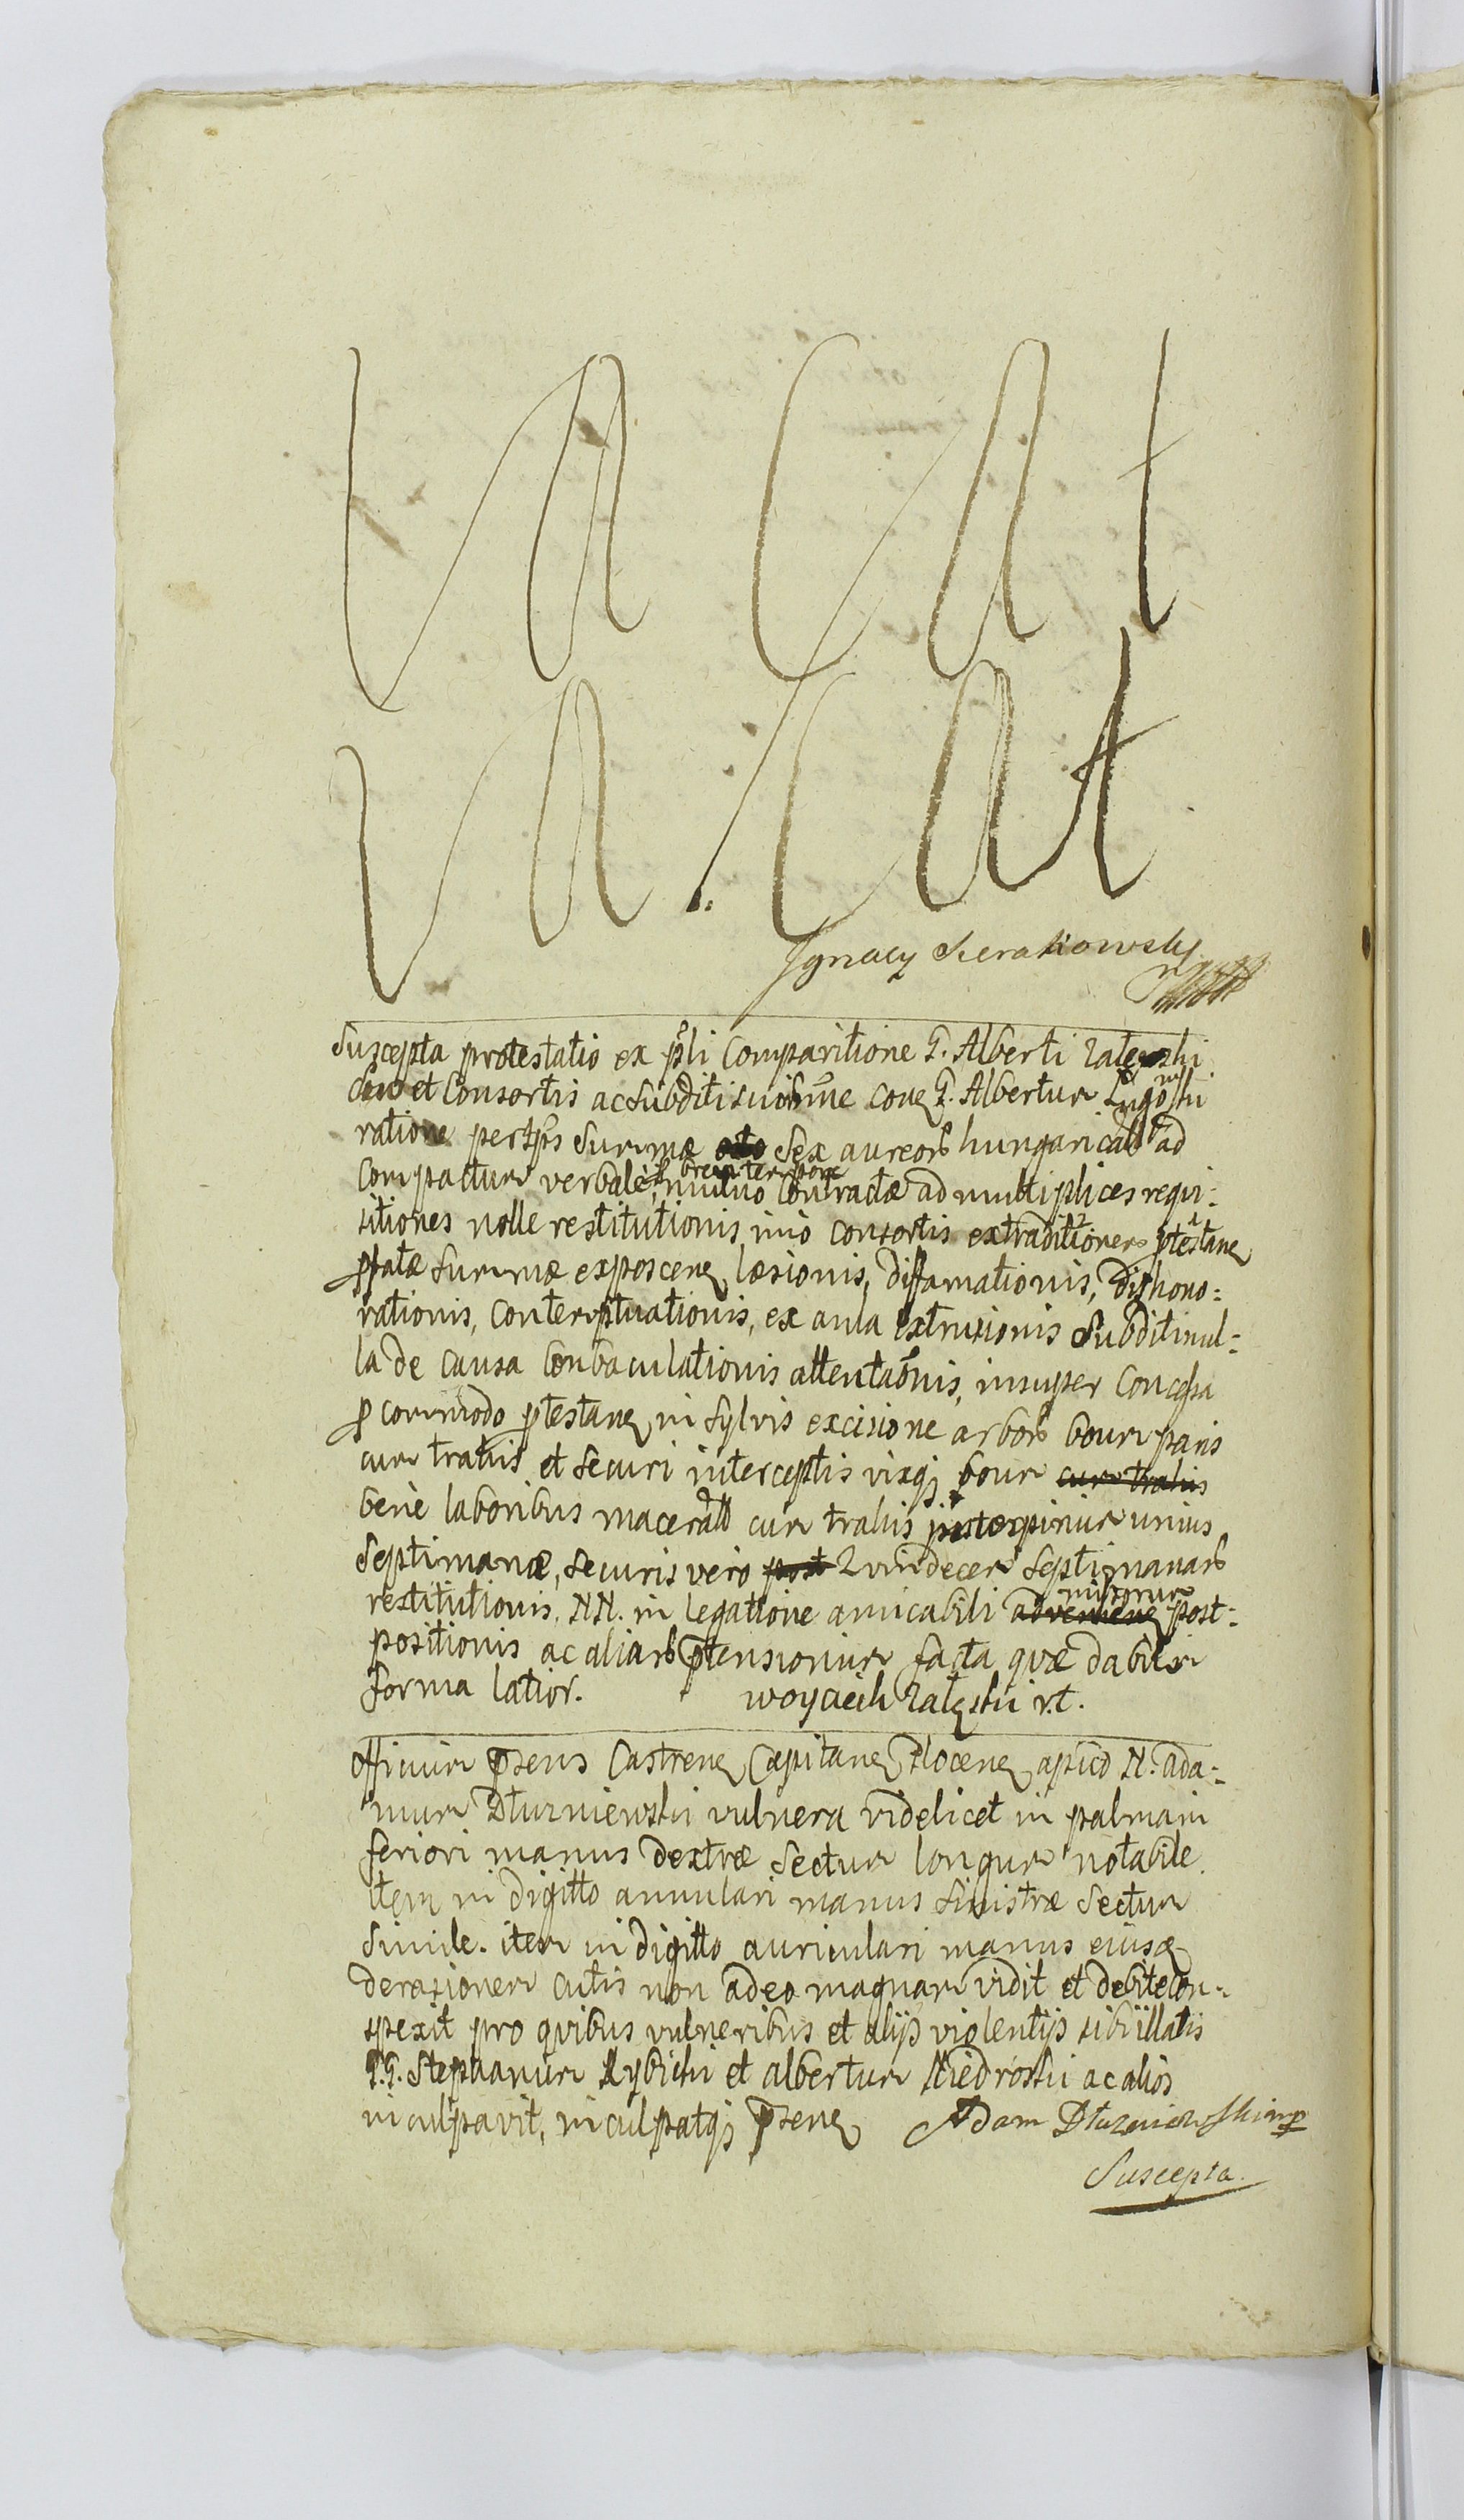 Vacat
Vacat
Ignacy Sierakowsky
Suscepta protestatio ex psli Comparitione G. Alberti Zalewski
suo et Consortis ac Subditi suis nne cona G. Albertum
ratione Summæ octo Sex aureorb hungaricalb ad
Compactum verbale, brevi tempore mutuo Contractæ ad multiplices requi:
sitiones nolle restitutionis, imo consortis extraditionem ptestane
pfatæ Summæ exposcene, læsionis, diffamationis, dishono:
rationis, Contemptuationis, ex aula extrusionis Subditi nul:
la de causa Conbaculationis attentaonis, insuper Concessa
p commodo ptestane in Sylvis excisione arborb boum paris
cum trahis et Securi interceptis vixq boum cum trahis
bene laboribus maceratb cum trahis unius
Septimanæ, Securis vero post Quindecem Septimanarb
restitutionis, NN. in legatione amicabili adveniene missorum post:
positionis ac aliarb ptensionum facta quæ dabitur
forma latior. Woyciech Zaleski r.t.
Officium psens Castrene Capitane Plocene apud N. Ada:
mum Dłuzniewski vulnera videlicet in palma in
feriori manus dextræ Sectum longum notabile.
item in digitto annulari manus Sinistræ Sectum
Simile. item in digitto auriculari manus eiusd
derasionem cutis non adeo magnam vidit et debite con:
spexit pro quibus vulneribus et alijs violentijs sibi illatis
G.G. Stephanum Rybicki et Albertum Niedroski ac alios
inculpavit, inculpatq psene Adam Dłuzniewski mp
Suscepta.